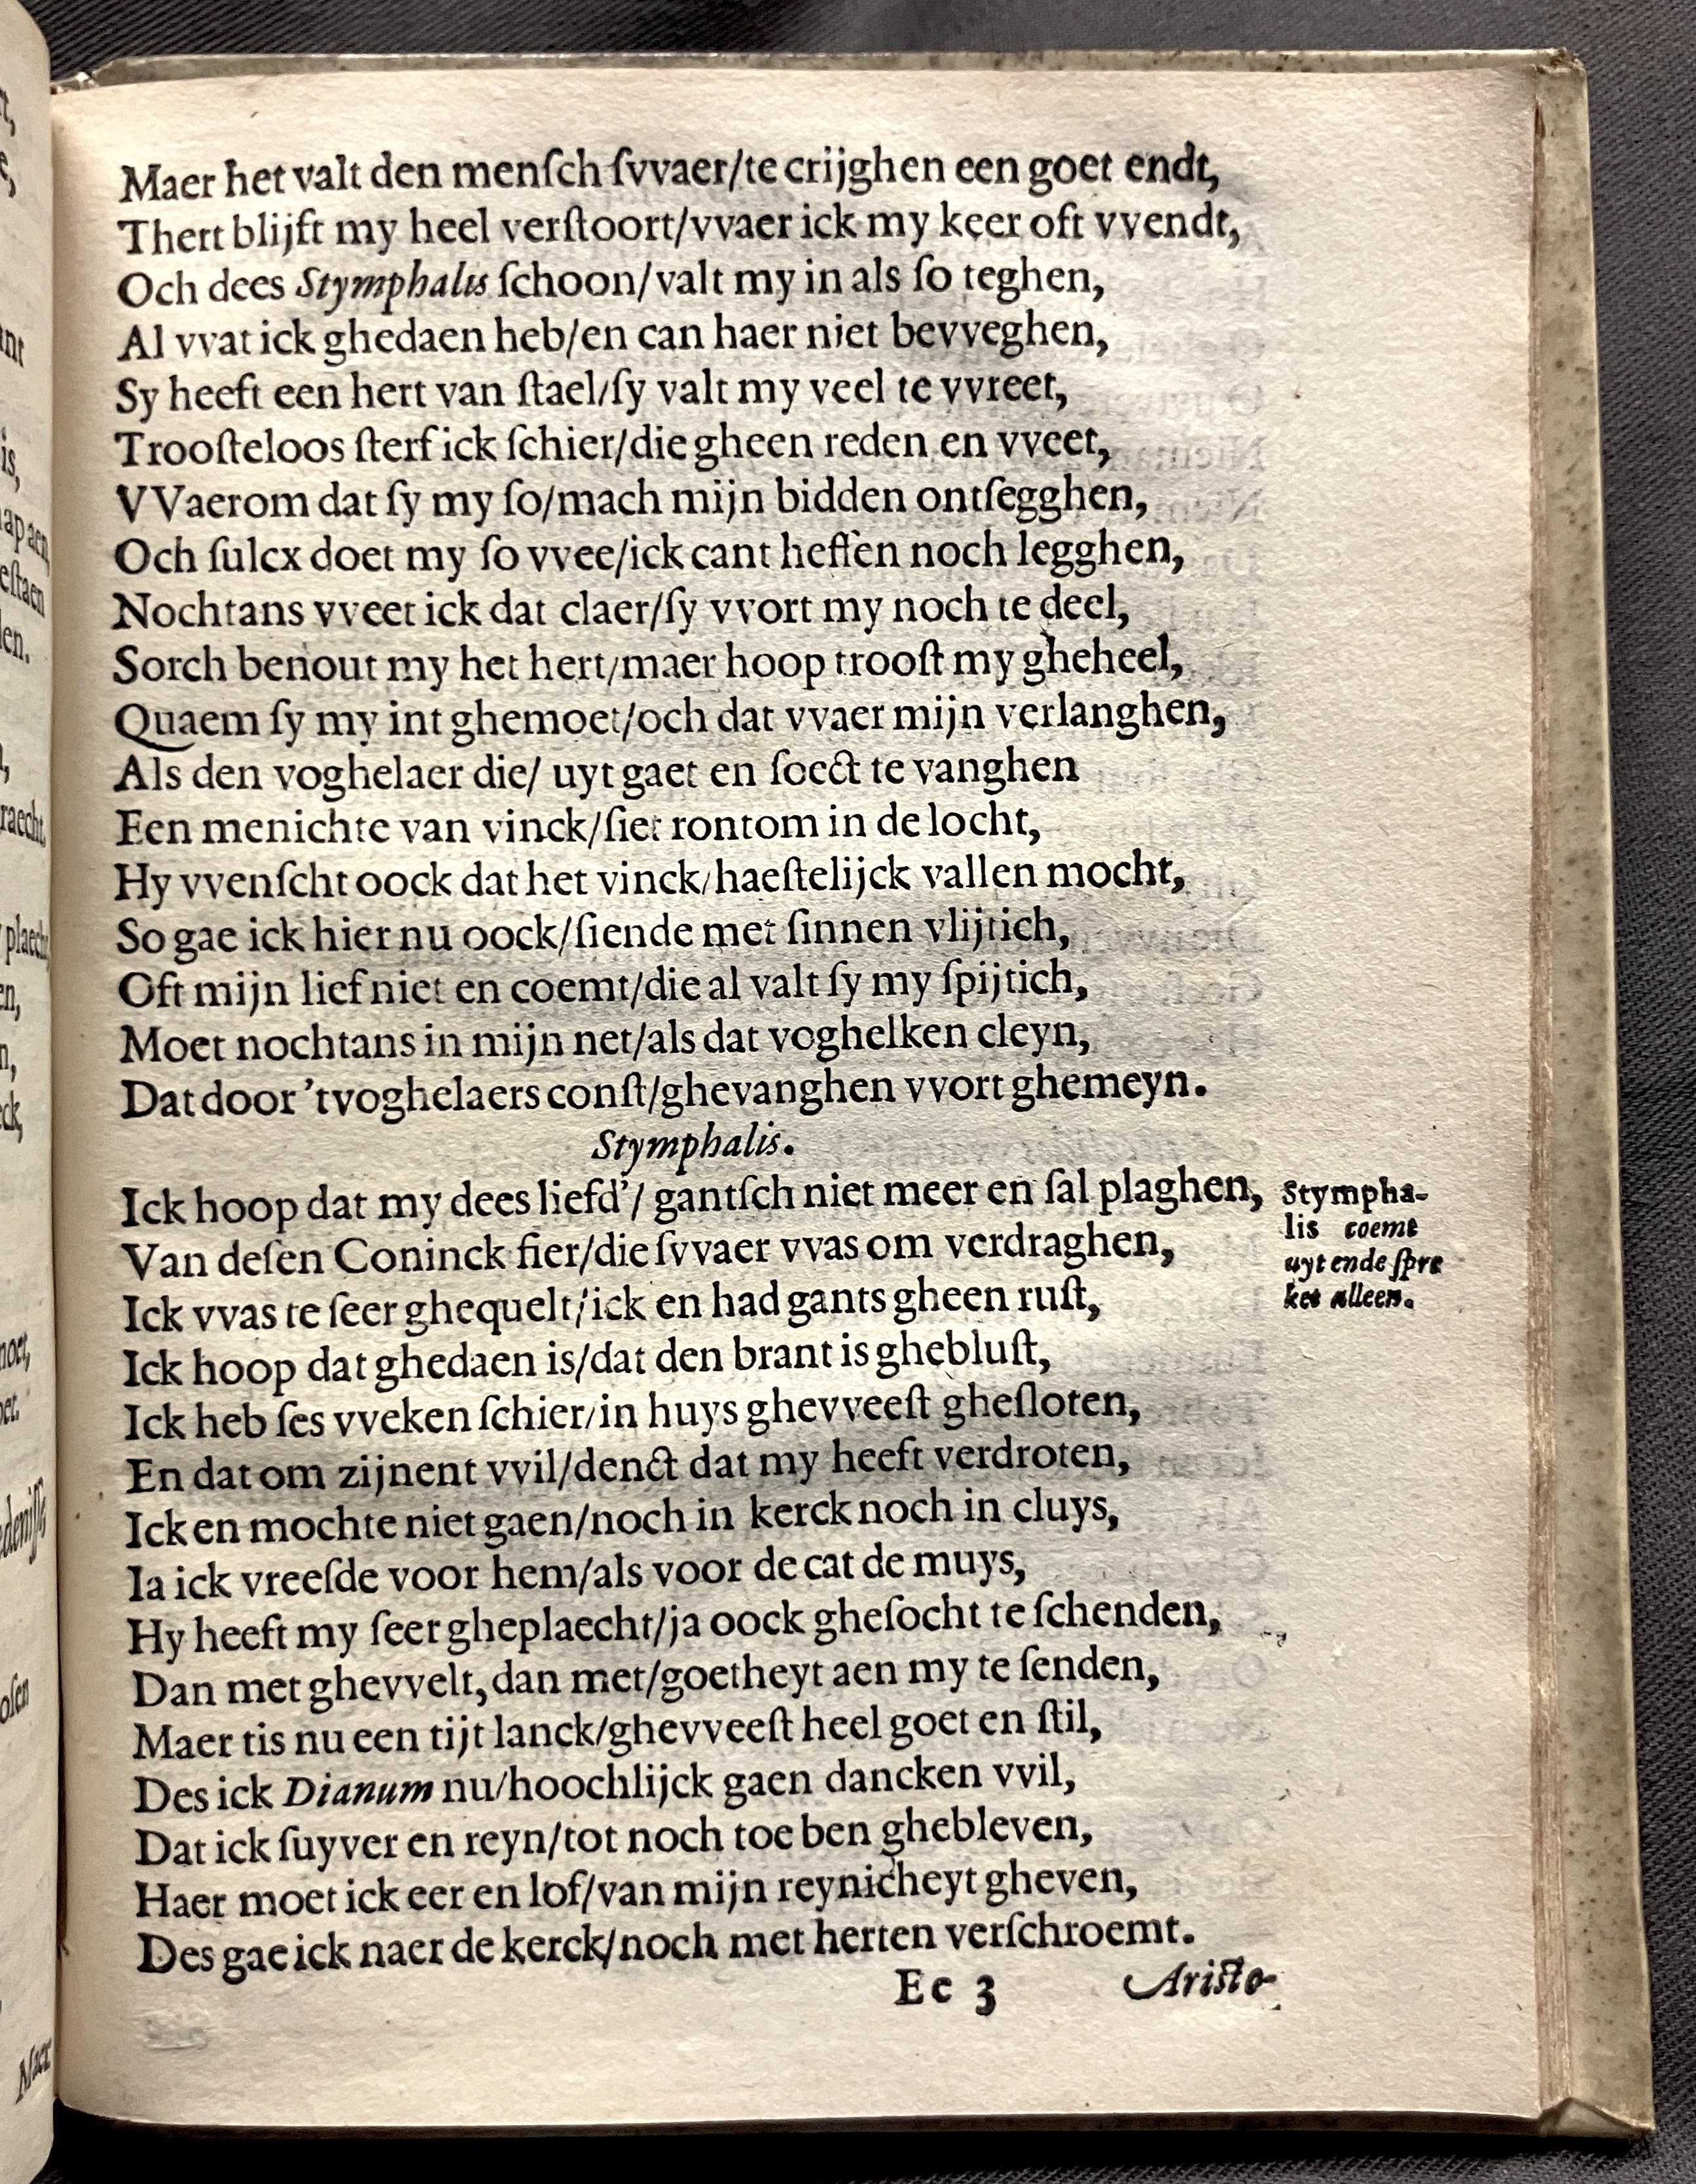 Maer het valt den menſch ſvvaer/te crijghen een goet endt,
Thert blijft my heel verſtoort/vvaer ick my keer oft vvendt,
Och dees Stymphalis ſchoon/valt my in als ſo teghen,
Al vvat ick ghedaen heb/en can haer niet bevveghen,
Sy heeft een hert van ſtael/ſy valt my veel te vvreet,
Trooſteloos ſterf ick ſchier/die gheen reden en vveet,
VVaerom dat ſy my ſo/mach mijn bidden ontſegghen,
Och ſulcx doet my ſo vvee/ick cant heffen noch legghen,
Nochtans vveet ick dat claer/ſy vvort my noch te deel,
Sorch benout my het hert/maer hoop trooſt my gheheel,
Quaem ſy my int ghemoet/och dat vvaer mijn verlanghen,
Als den voghelaer die/ uyt gaet en ſoect te vanghen
Een menichte van vinck/ſiet rontom in de locht,
Hy vvenſcht oock dat het vinck/haeſtelijck vallen mocht,
So gae ick hier nu oock/ſiende met ſinnen vlijtich,
Oft mijn lief niet en coemt/die al valt ſy my ſpijtich,
Moet nochtans in mijn net/als dat voghelken cleyn,
Dat door 'tvoghelaers conſt/ghevanghen vvort ghemeyn.
Stymphalis.
Ick hoop dat my dees liefd'/ gantſch niet meer en ſal plaghen,
Van deſen Coninck fier/die ſvvaer vvas om verdraghen,
Ick vvas te ſeer ghequelt/ick en had gants gheen ruſt,
Ick hoop dat ghedaen is/dat den brant is ghebluſt,
Ick heb ſes vveken ſchier/in huys ghevveeſt gheſloten,
En dat om zijnent vvil/denct dat my heeft verdroten,
Ick en mochte niet gaen/noch in kerck noch in cluys,
Ia ick vreeſde voor hem/als voor de cat de muys,
Hy heeft my ſeer gheplaecht/ja oock gheſocht te ſchenden,
Dan met ghevvelt, dan met/goetheyt aen my te ſenden,
Maer tis nu een tijt lanck/ghevveeſt heel goet en ſtil,
Des ick Dianum nu/hoochlijck gaen dancken vvil,
Dat ick ſuyver en reyn/tot noch toe ben ghebleven,
Haer moet ick eer en lof/van mijn reynicheyt gheven,
Des gae ick naer de kerck/noch met herten verſchroemt.
Ee 3
Ariſto-
Stympha-
lis coemt
uyt ende ſpre
ket alleen.